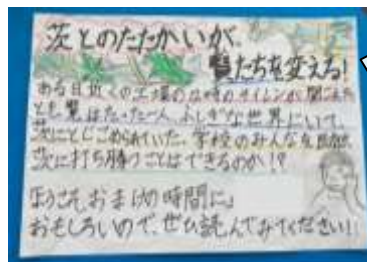 茨とのたたかいが、
賢たちを変える!
ある日近くの工場の12時のサイレンが聞こえた
とき賢はたった一人、ふしぎな世界にいて、
茨にとじこめられていた。学校のみんなを
茨に打ち勝つことはできるのか!?
「ようこそ、おまけの時間に」
おもしろいので、ぜひ読んでみてください!!